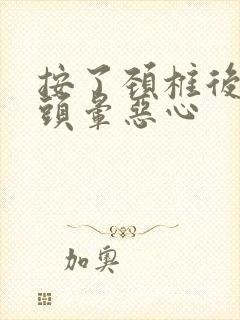 按了頚柱後
頭暈惡心
加奧